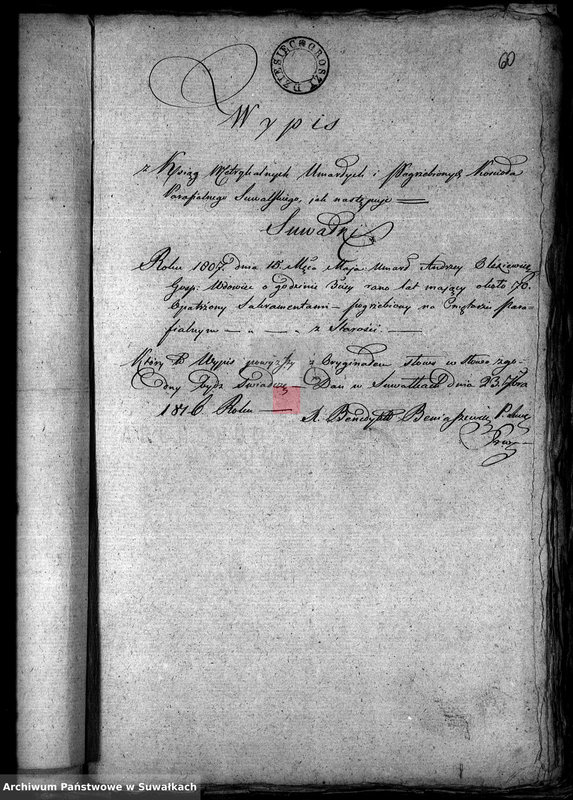 60
DZIESIĘĆ GROSZY
Wypis
z Ksiąg Metrykalnych Umarłych i Pogrzebionych Kościoła
Parafialnego Suwalskiego, jak następuje
Suwałki
Roku 1807. dnia 18. Mca Maja Umarł Andrzey
Gosp. Wdowiec o godzinie rano lat mający około 70.
Opatrzony Sakramentami pogrzebiony na Cmętarzu Para-
fialnym — „ — „ — z Starości. —
Który to Wypis powyższy z Oryginałem słowo w słowo zgo-
dny bydz Świadczę — Dan w Suwałkach dnia 23. 7bra
1816 Roku — X. Benedykt
Archiwum Państwowe w Suwałkach